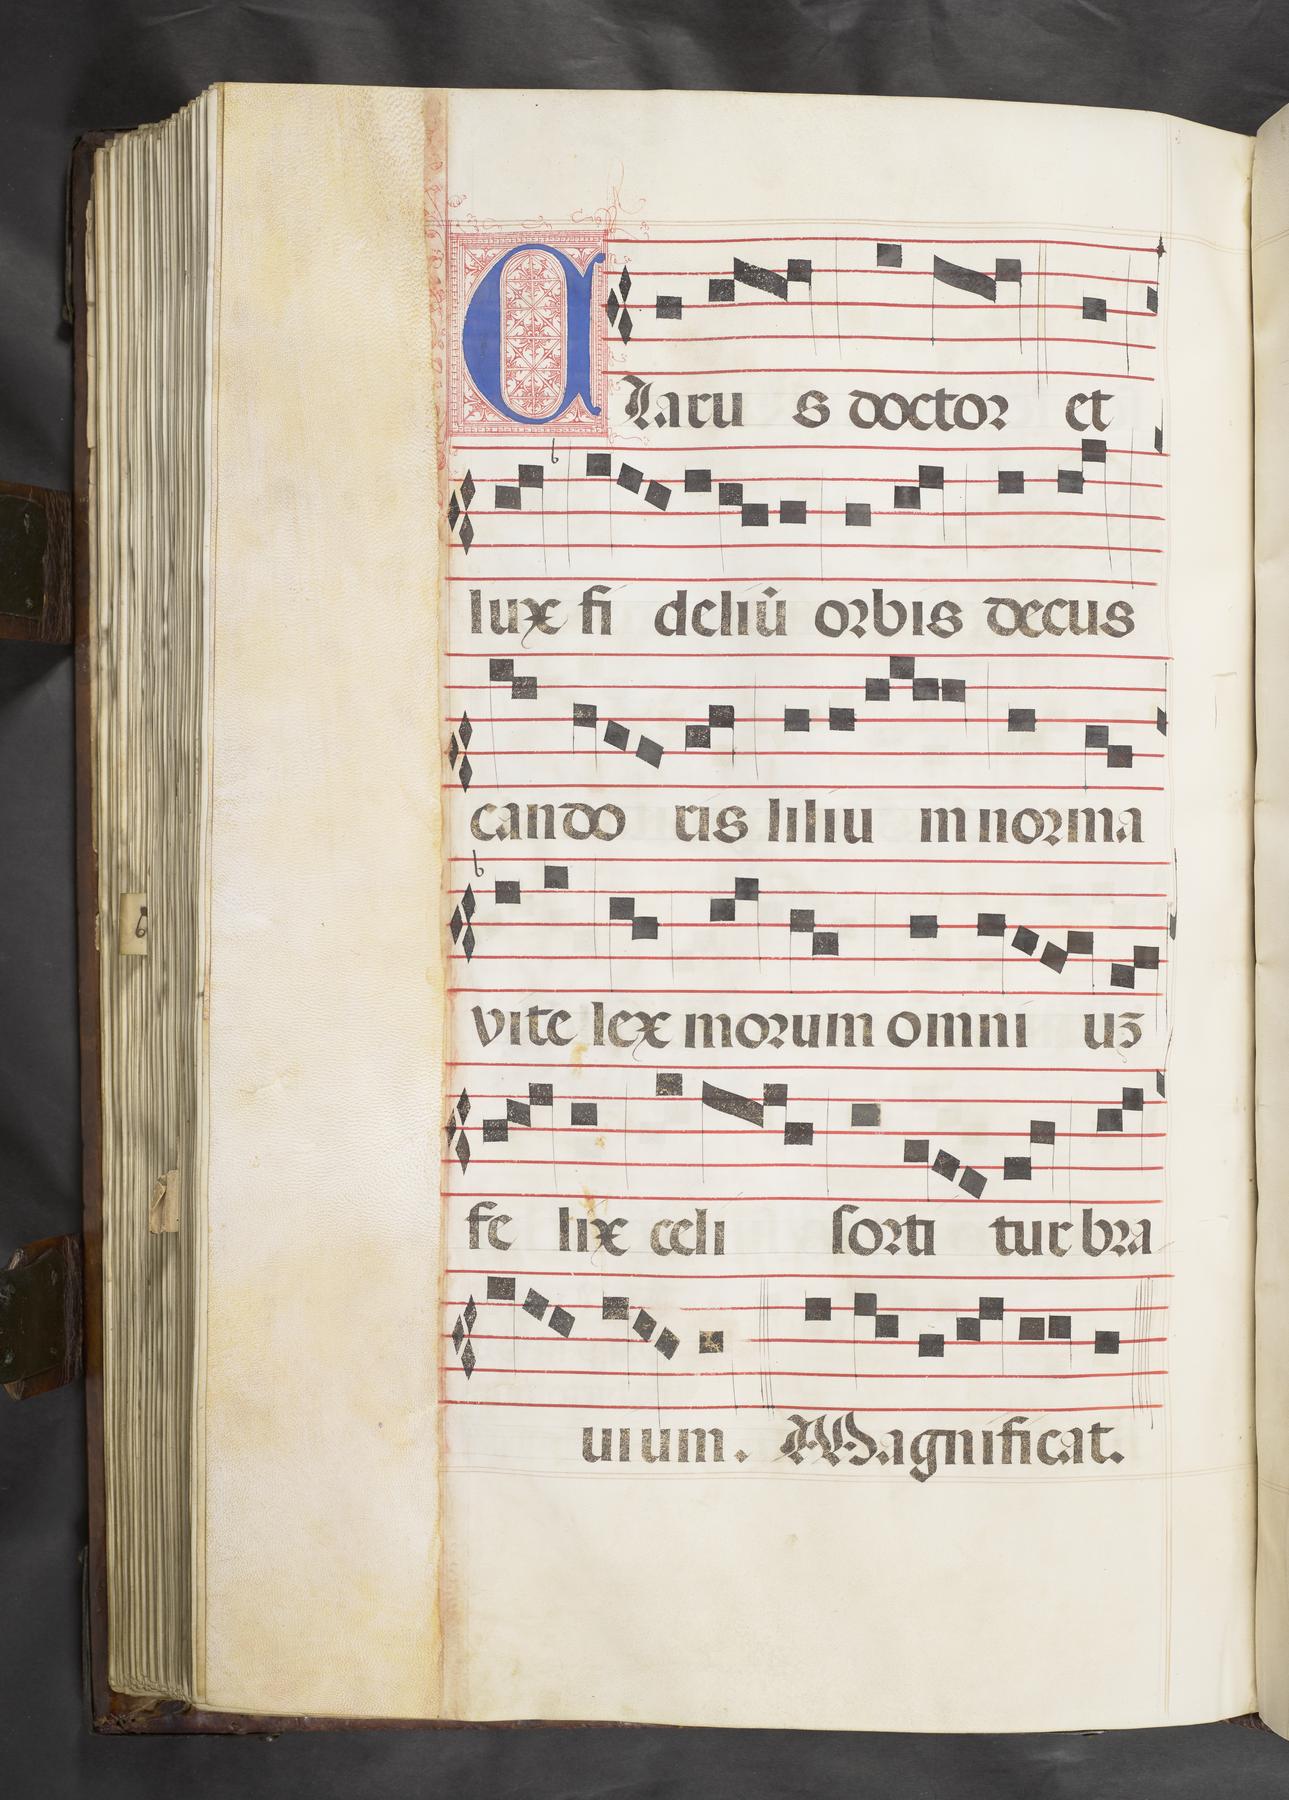 Claru s doctor et
lux fi deliū orbis decus
cando ris liliu m norma
vite lex morum omni uʒ
fe lix celi sorti tur bra
uium. Magnificat.
6